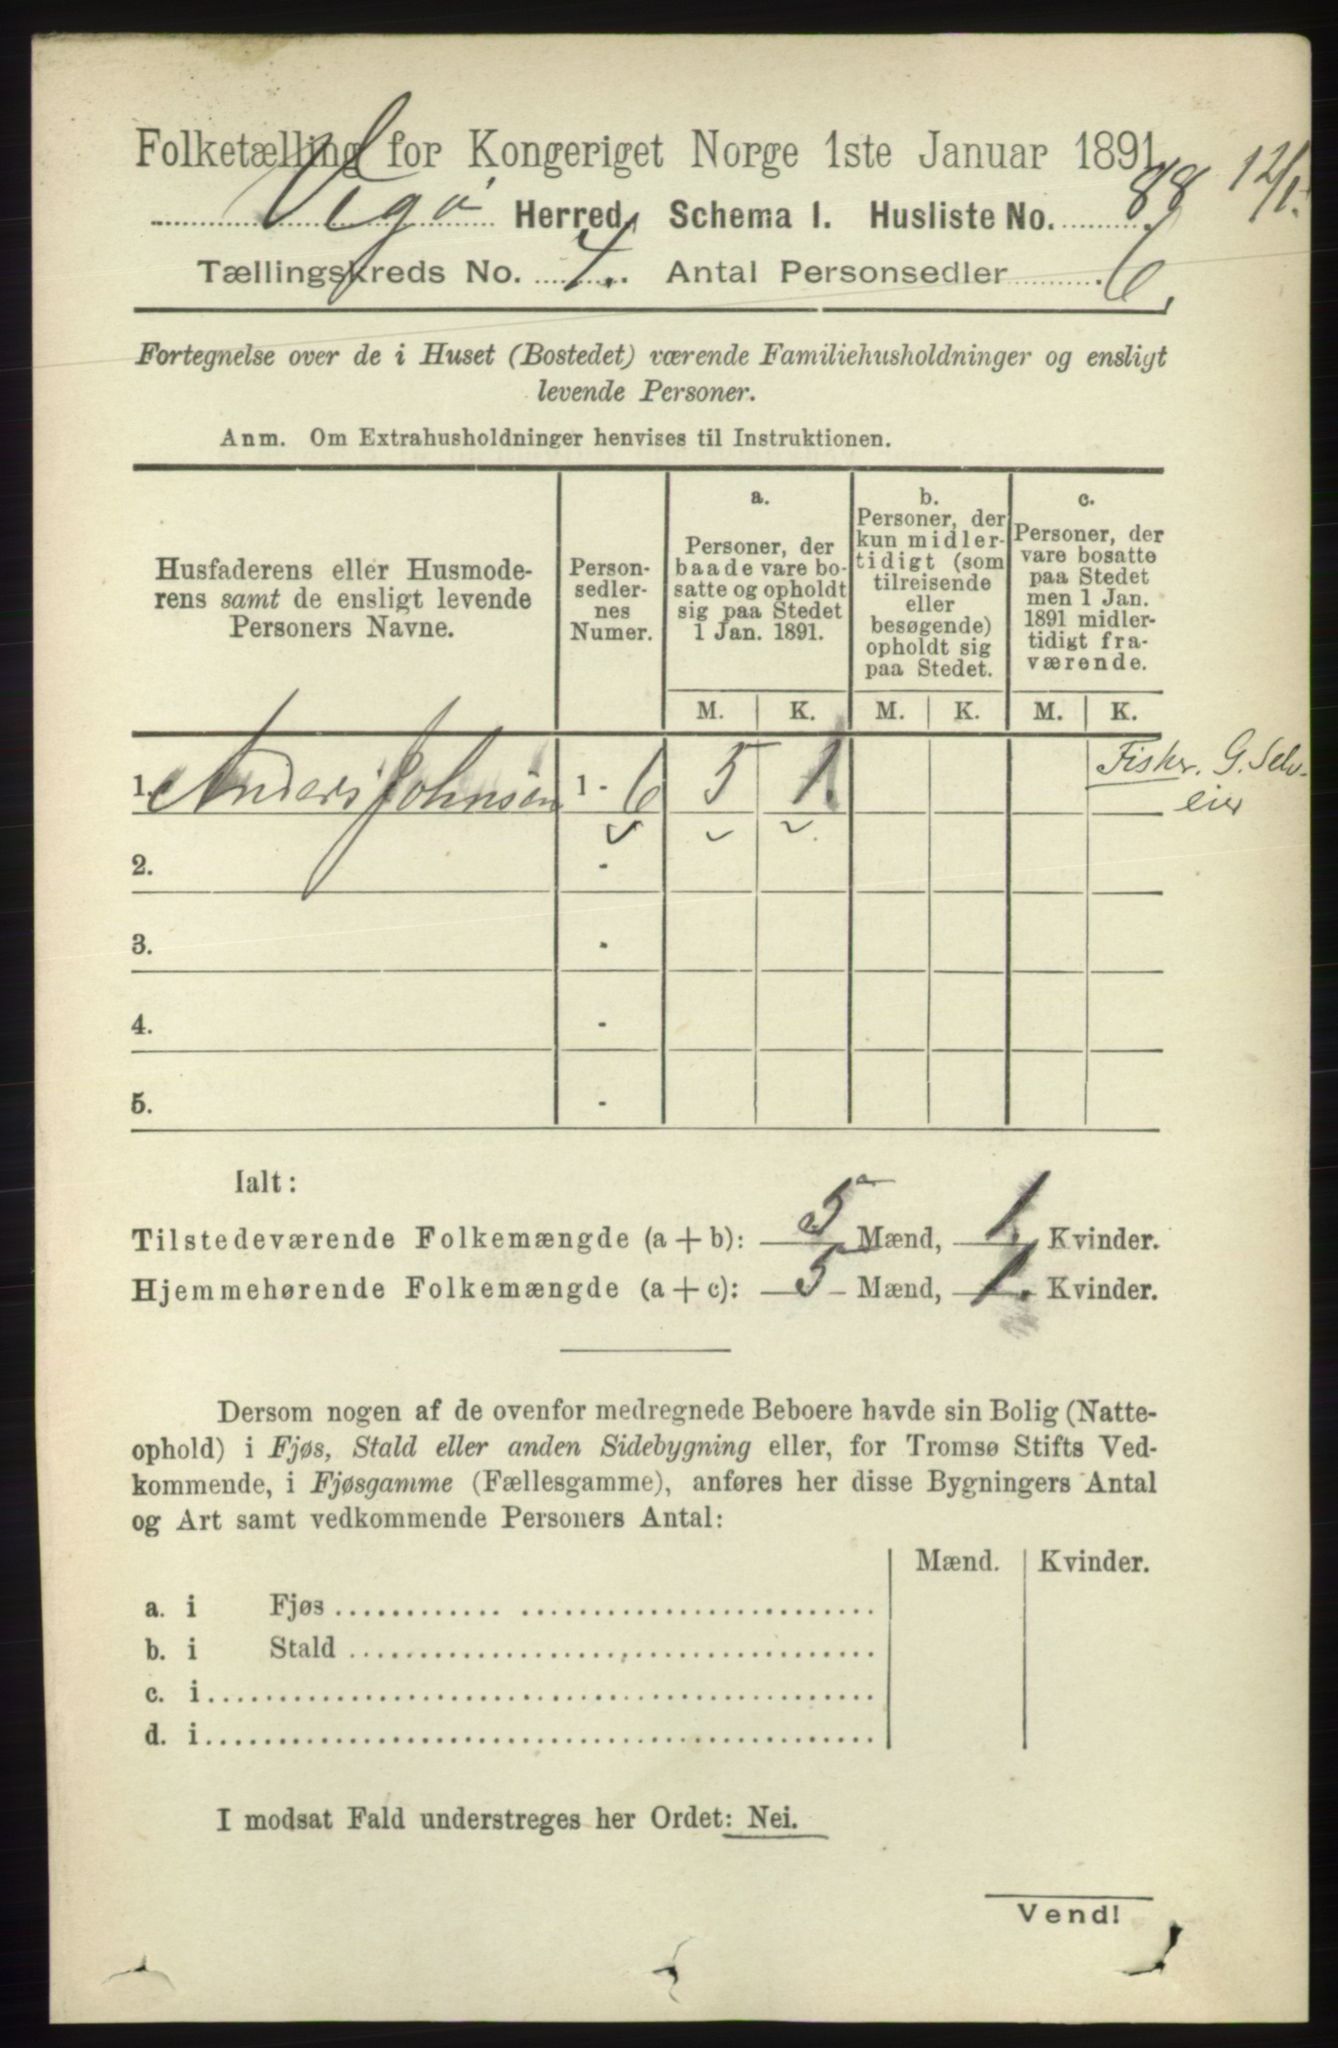 Folketælling for Kongeriget Norge 1ste Januar 1891.
Vegø Herred, Schema I. Husliste No. 88
12/1.
Tællingskreds No. 4. Antal Personsedler 6,
Fortegnelse over de i Huset (Bostedet) værende Familiehusholdninger og ensligt
levende Personer.
Anm. Om Extrahusholdninger henvises til Instruktionen.
Husfaderens eller Husmode-
rens samt de ensligt levende
Personers Navne.
Person-
sedler-
nes
Numer.
a.
Personer, der
baade vare bo-
satte og opholdt
sig paa Stedet
1 Jan. 1891.
b.
Personer, der
kun midler-
tidigt (som
tilreisende
eller
besøgende)
opholdt sig
paa Stedet.
c.
Personer, der
vare bosatte
paa Stedet
men 1 Jan.
1891 midler-
tidigt fra-
værende.
M. K. M. K. M. K.
1. Anders Johnsen 1 - 6 5 1. Fisker. G. Selv-
eier
2. -
3. -
4. -
5. -
Ialt:
Tilstedeværende Folkemængde (a + b): 5 Mænd, 1, Kvinder.
Hjemmehørende Folkemængde (a + c): 5 Mænd, 1. Kvinder.
Dersom nogen af de ovenfor medregnede Beboere havde sin Bolig (Natte-
ophold) i Fjøs, Stald eller anden Sidebygning eller, for Tromsø Stifts Ved-
kommende, i Fjøsgamme (Fællesgamme), anføres her disse Bygningers Antal
og Art samt vedkommende Personers Antal:
Mænd. Kvinder.
a. i Fjøs
b. i Stald
c. i
d. i
I modsat Fald understreges her Ordet: Nei.
Vend!